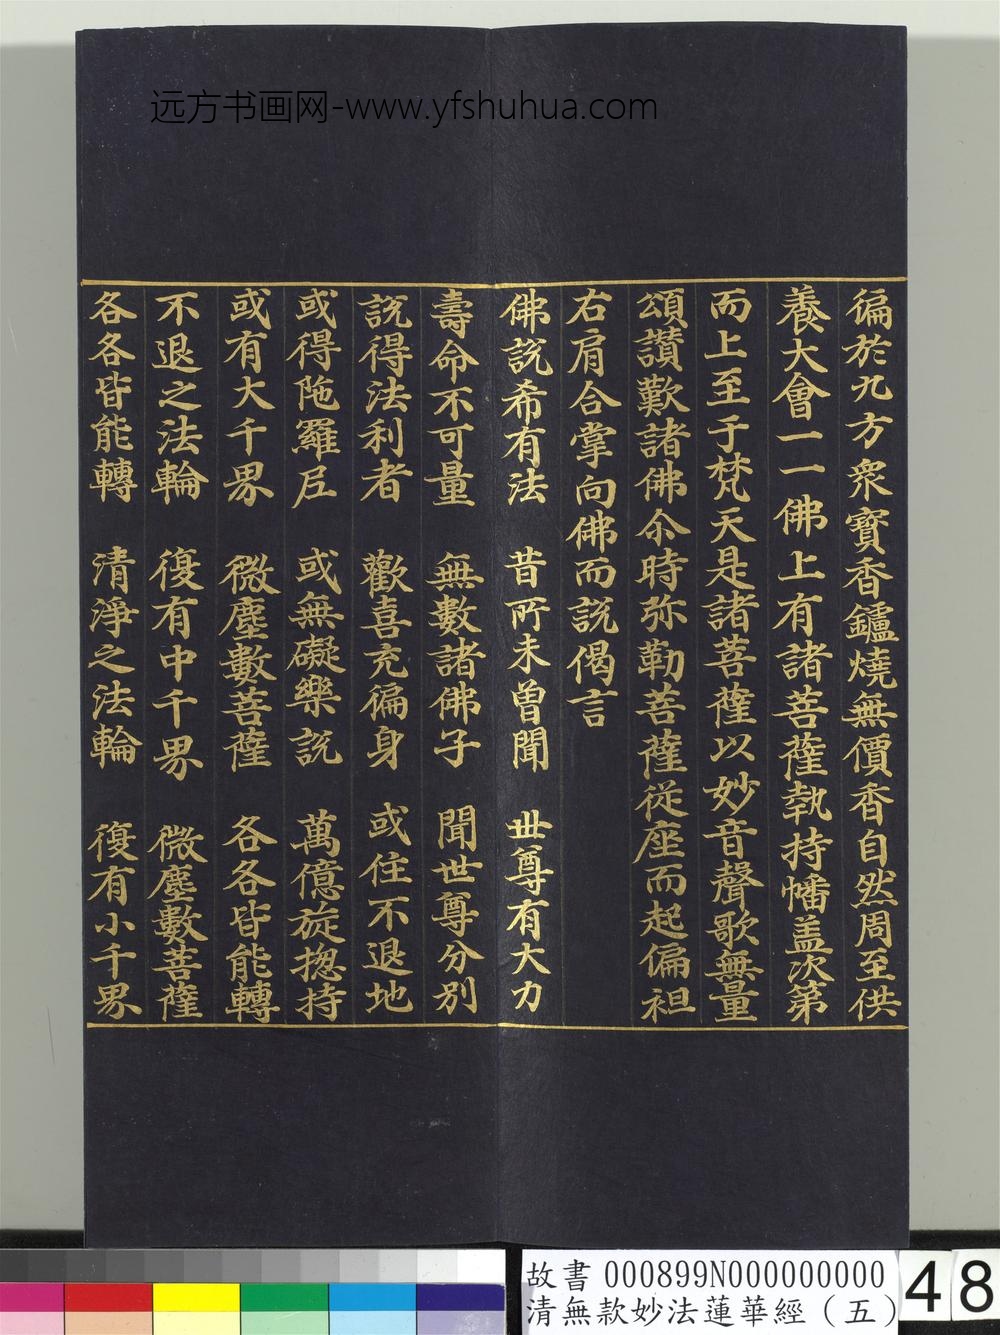 远方书画网-www.yfshuhua.com
徧於九方衆寶香鑪燒無價香自然周至供
養大會一一佛上有諸菩薩執持幡盖次第
而上至于梵天是諸菩薩以妙音聲歌無量
頌讃歎諸佛尒時弥勒菩薩從座而起偏袒
右肩合掌向佛而說偈言
佛說希有法　昔所未曾聞　世尊有大力
壽命不可量　無數諸佛子　聞世尊分别
説得法利者　歡喜充徧身　或住不退地
或得陁羅尼　或無礙樂説　萬億旋揔持
或有大千界　微塵數菩薩　各各皆能轉
不退之法輪　復有中千界　微塵數菩薩
各各皆能轉　清淨之法輪　復有小千界
故書 000899N000000000
清無款妙法蓮華經（五）
48